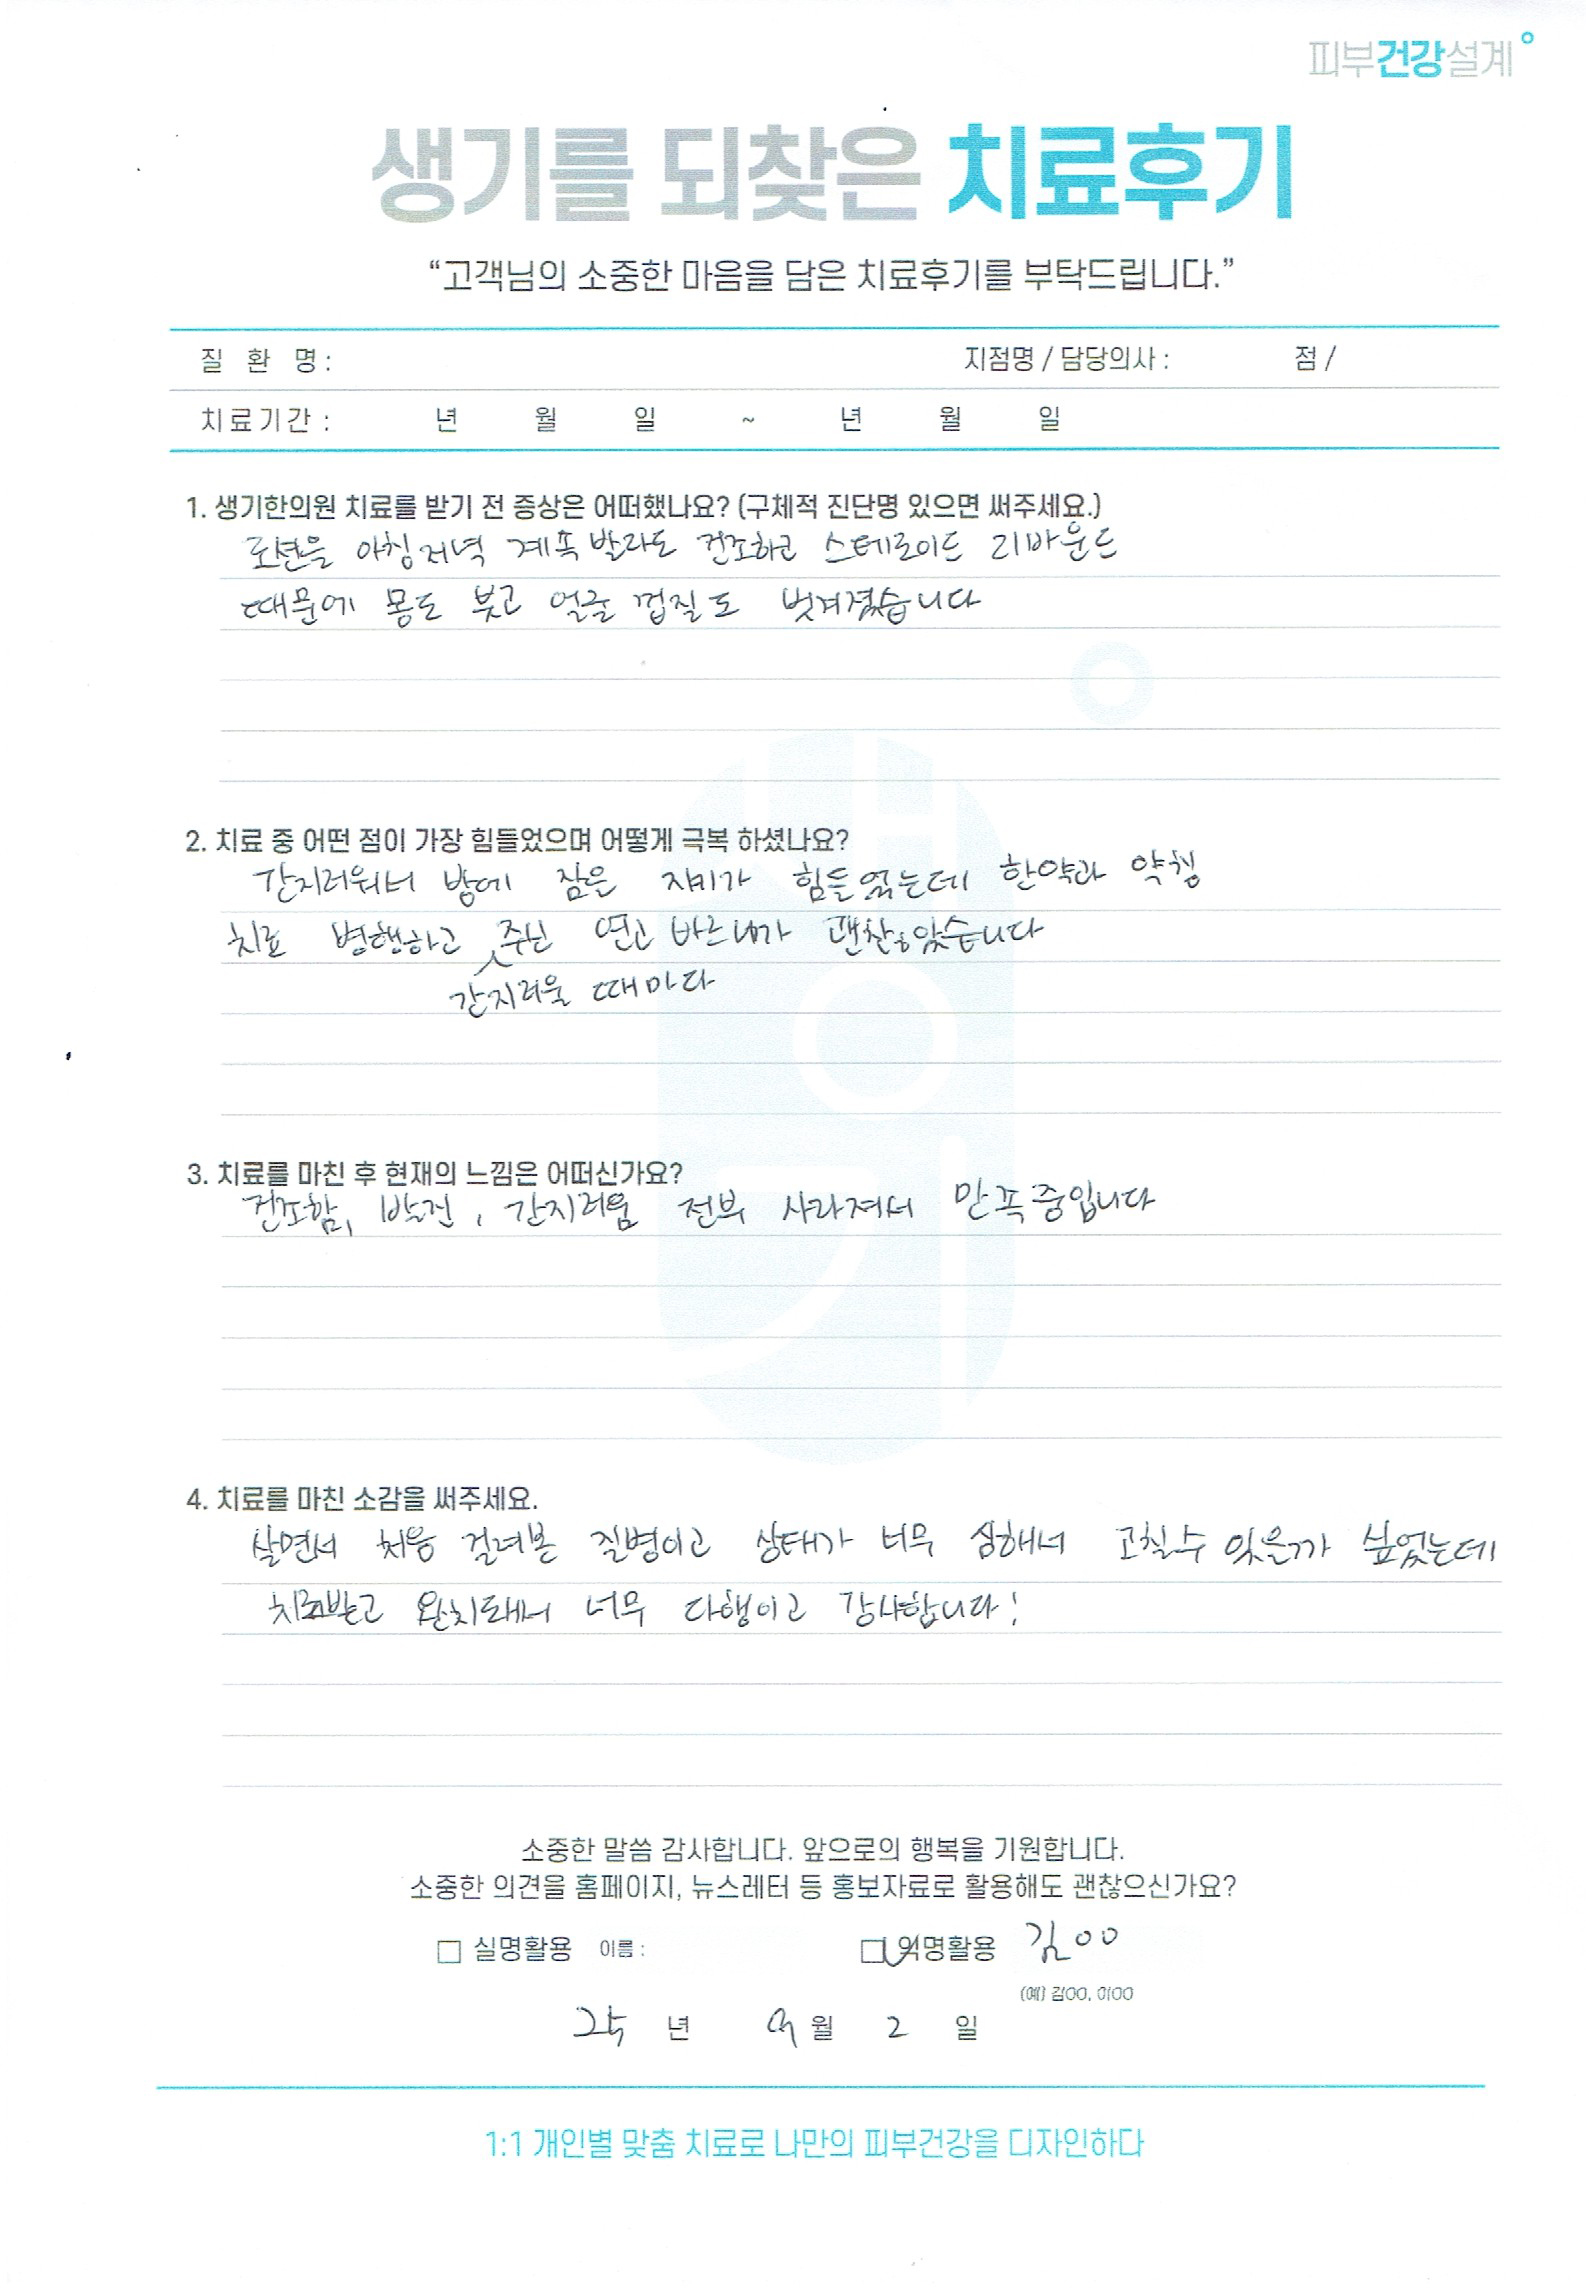 피부건강설계
생기를 되찾은 치료후기
“고객님의 소중한 마음을 담은 치료후기를 부탁드립니다.”
질 환 명 : 지점명 / 담당의사 : 점 /
치료기간 : 년 월 일 ~ 년 월 일
1. 생기한의원 치료를 받기 전 증상은 어떠했나요? (구체적 진단명 있으면 써주세요.)
로션을 아침저녁 계속 발라도 건조하고 스테로이드 리바운드
때문에 몸도 붓고 얼굴 껍질도 벗겨졌습니다
2. 치료 중 어떤 점이 가장 힘들었으며 어떻게 극복 하셨나요?
간지러워서 밤에 잠을 자기가 힘들었는데 한약과 약침
치료 병행하고 주신 연고 바르니까 괜찮았습니다
간지러울 때마다
3. 치료를 마친 후 현재의 느낌은 어떠신가요?
건조함, 발진, 간지러움 전부 사라져서 만족중입니다
4. 치료를 마친 소감을 써주세요.
살면서 처음 걸려본 질병이고 상태가 너무 심해서 고칠수 있을까 싶었는데
치료받고 완치돼서 너무 다행이고 감사합니다!
소중한 말씀 감사합니다. 앞으로의 행복을 기원합니다.
소중한 의견을 홈페이지, 뉴스레터 등 홍보자료로 활용해도 괜찮으신가요?
□ 실명활용 이름 : □ 익명활용 김OO
(예) 김OO, 이OO
25 년 9월 2 일
1:1 개인별 맞춤 치료로 나만의 피부건강을 디자인하다